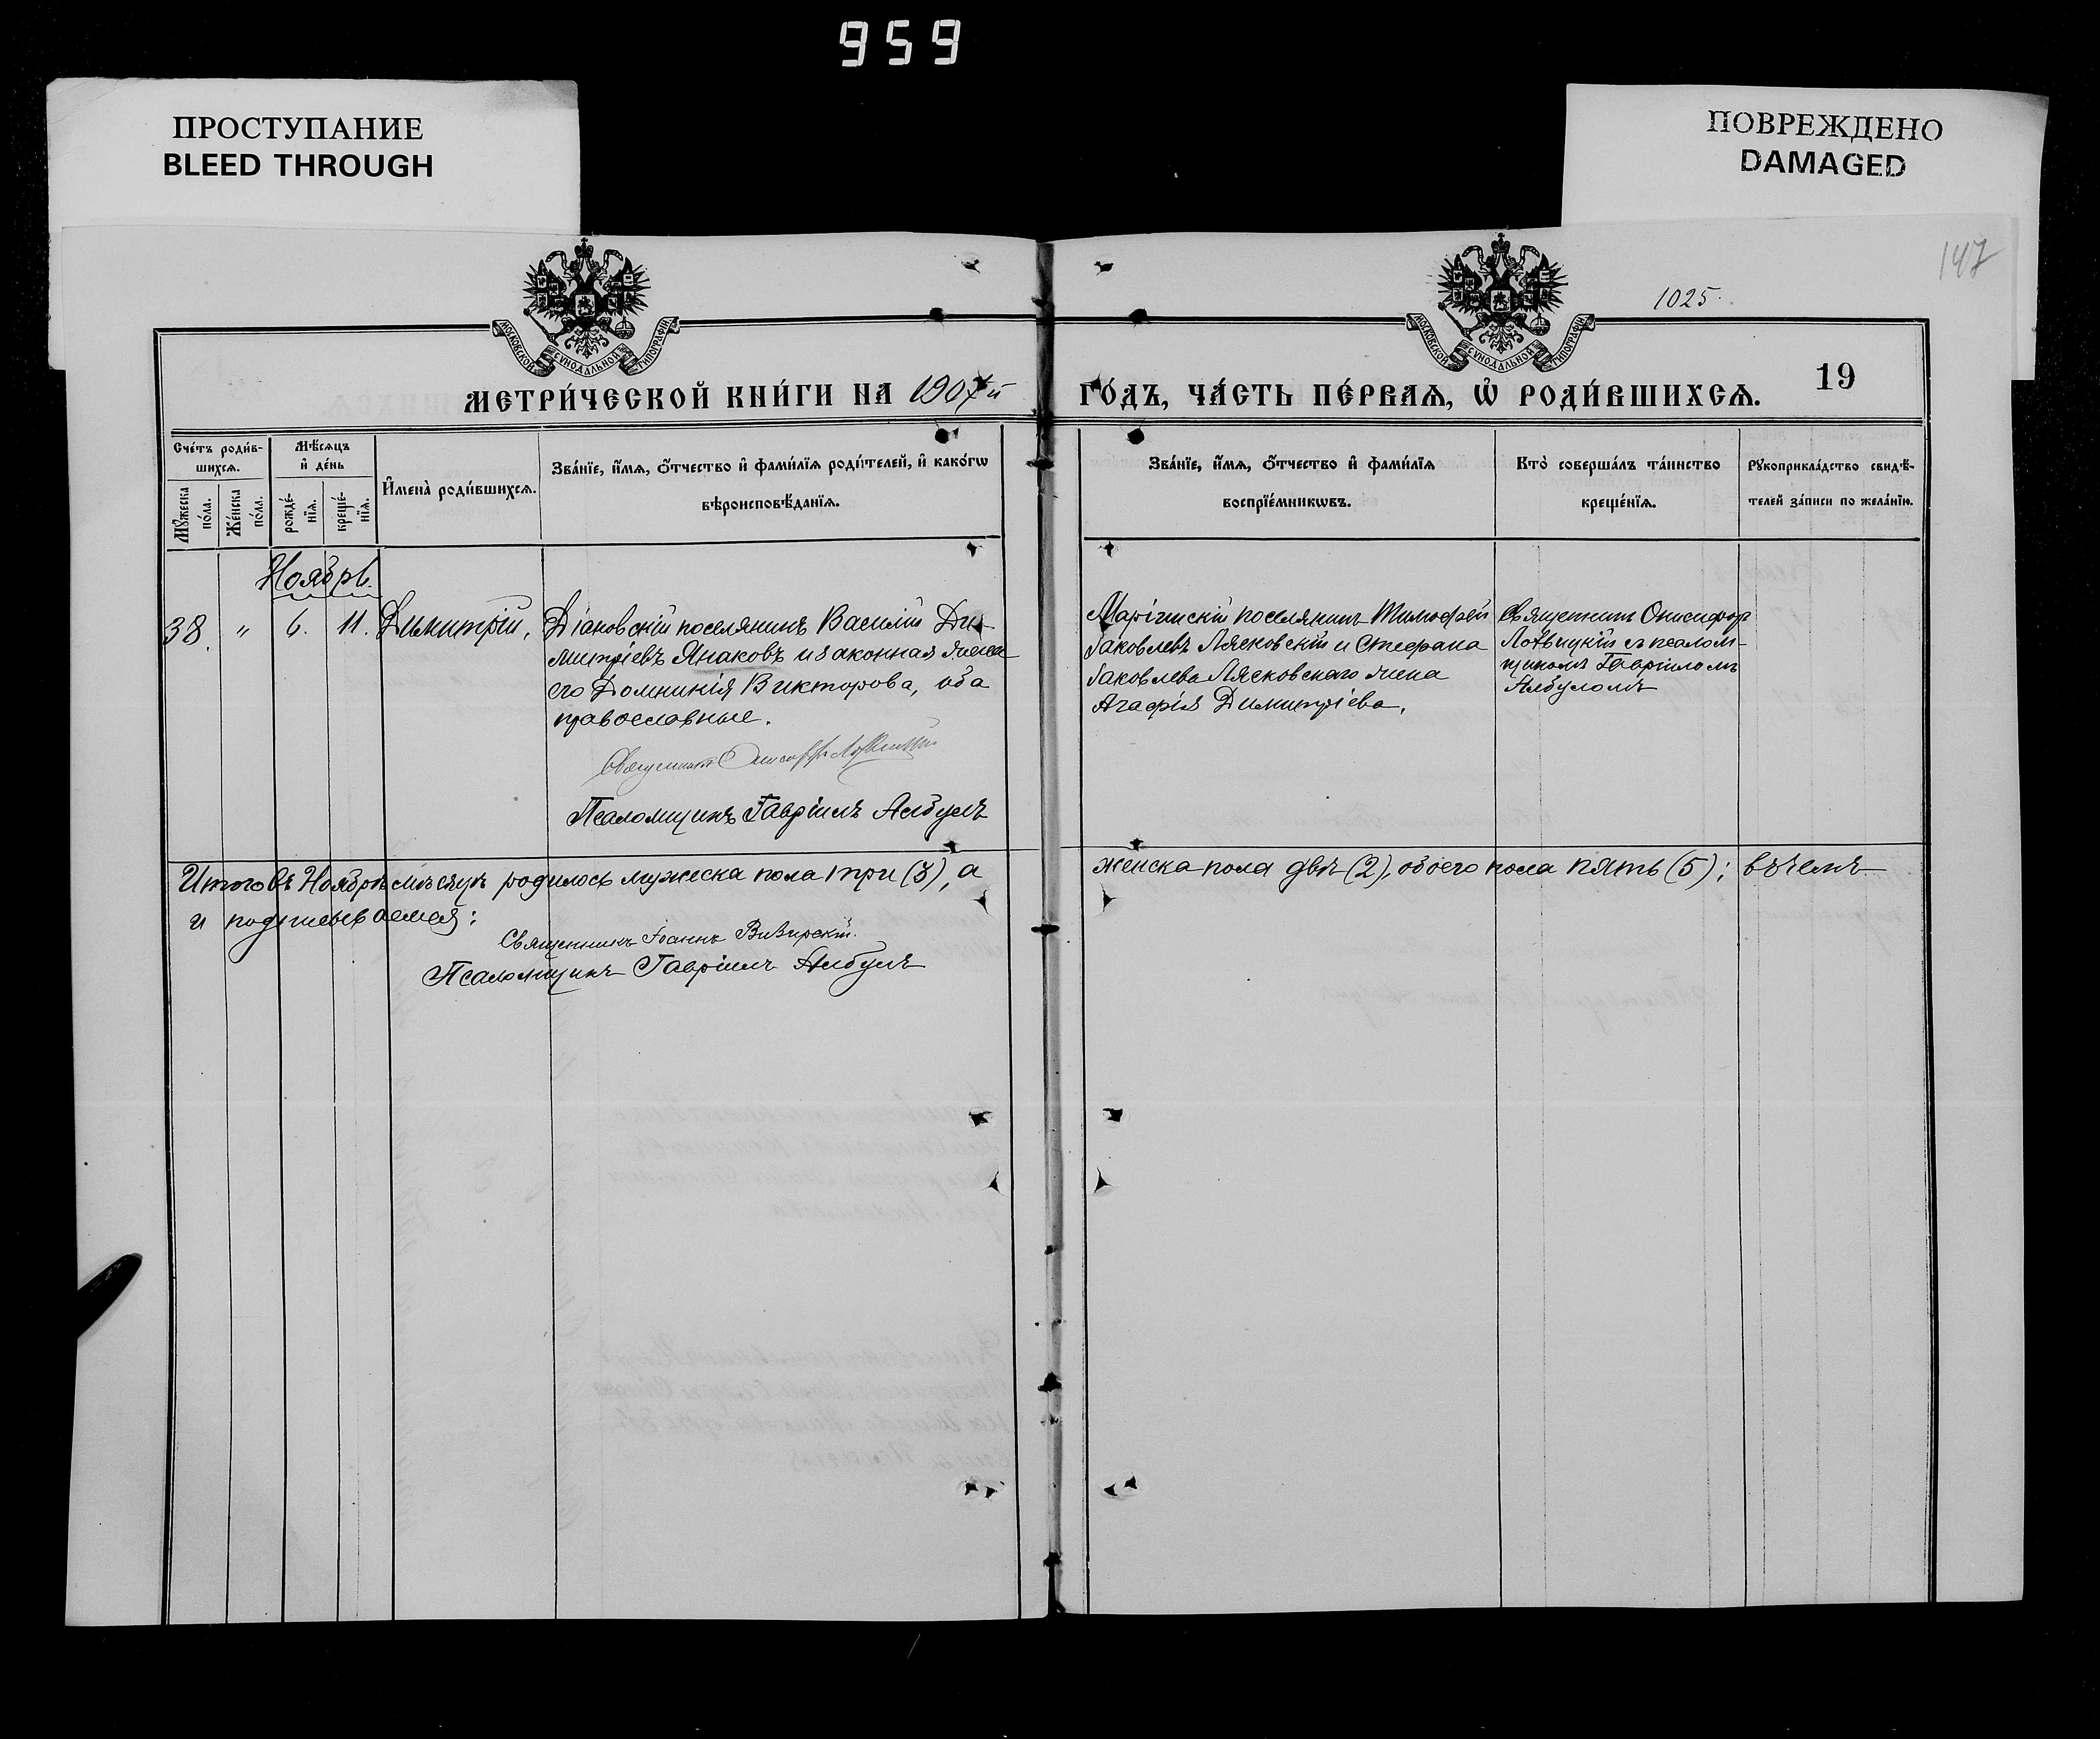 959
ПРОСТУПАНИЕ
BLEED THROUGH
ПОВРЕЖДЕНО
DAMAGED
147
1025.
МОСКОВСКОЙ СѴНОДАЛЬНОЙ ТИПОГРАФІИ
МОСКОВСКОЙ СѴНОДАЛЬНОЙ ТИПОГРАФІИ
МЕТРИ́ЧЕСКОЙ КНИ́ГИ НА 1907й
ГО́ДЪ, ЧА́СТЬ ПЕ́РВАѦ, Ѡ҆ РОДИ́ВШИХСѦ.
19
Сче́тъ роди́в-
шихсѧ.
Мꙋ́жеска по́ла.
Же́нска по́л.
Мѣ́сѧцъ
и҆ де́нь
рожде́-
нїѧ.
креще́-
нїѧ.
И҆мена̀ роди́вшихсѧ.
Зва́нїе, и҆́мѧ, ѻ҆́тчество и҆ фами́лїѧ роди́телей, и҆ како́гѡ
вѣроисповѣ́данїѧ.
Зва́нїе, и҆́мѧ, ѻ҆́тчество и҆ фами́лїѧ
воспрїе́мникѡвъ.
Кто̀ соверша́лъ та́инство
креще́нїѧ.
Рꙋкоприкла́дство свидѣ́-
телей за́писи по жела́нїю.
Ноябрь.
38. „ 6. 11. Димитрій,
Діановскій поселянинъ Василій Ди-
митріевъ Янаковъ и законная жена
его Домникія Викторова, оба
православные.
Священникъ Онисифоръ
Псаломщикъ Гавріилъ Албулъ
поселянинъ Тимофей
Іаковлевъ Лясковскій и Стефана
Іаковлева Лясковскаго жена
Агафія Димитріева.
Священникъ Онисифоръ
съ псалом-
щикомъ Гавріиломъ
Албуломъ
Итого въ Ноябрѣ мѣсяцѣ родилось мужеска пола три (3), а
женска пола двѣ (2), обоего пола пять (5); въ чемъ
и подписываемся:
Священникъ Іоаннъ Визирскій.
Псаломщикъ Гавріилъ Албулъ